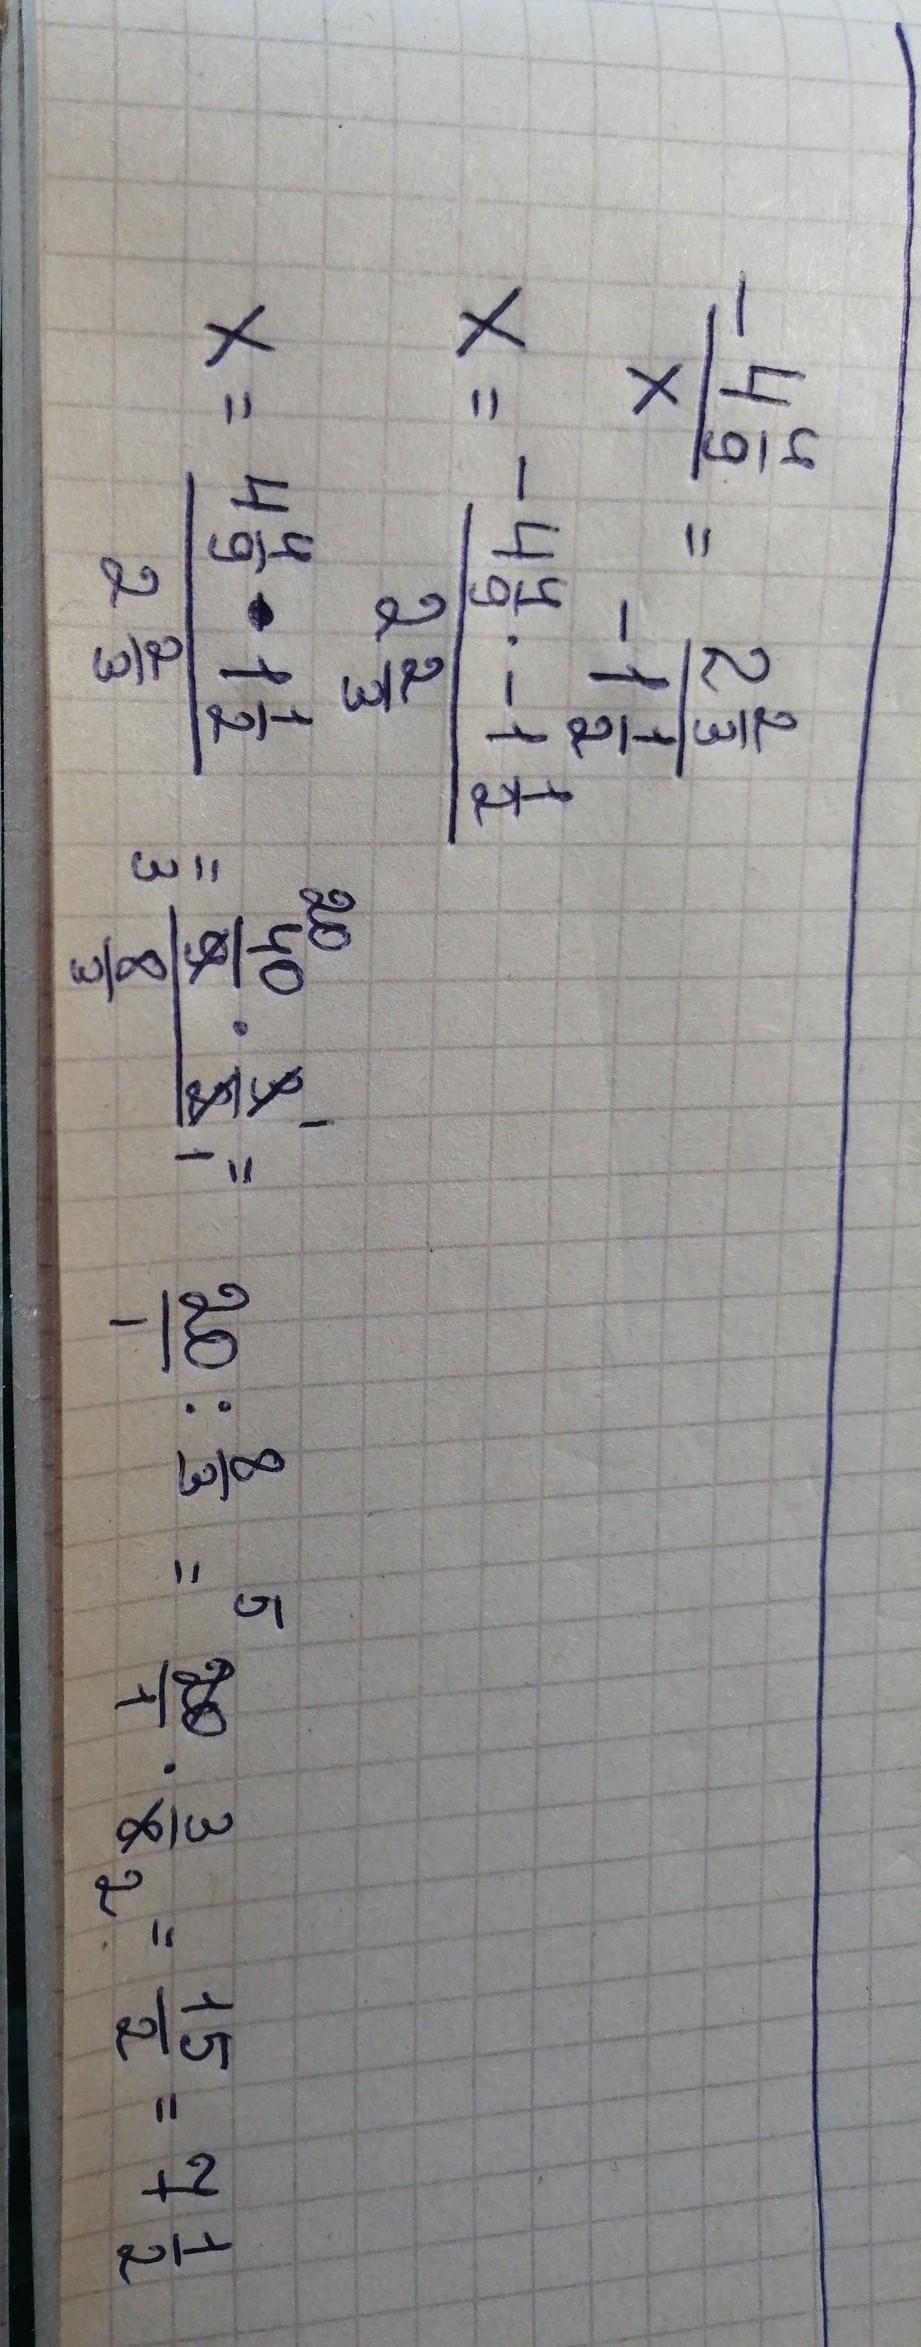 -4 4/9 / x = 2 2/3 / -1 1/2
x = -4 4/9 · -1 1/2 / 2 2/3
x = 4 4/9 · 1 1/2 / 2 2/3 = 20 40/9 3 · 3/2 1 1 / 8/3 = 20/1 : 8/3 = 5 20/1 · 3/8 2 = 15/2 = 7 1/2